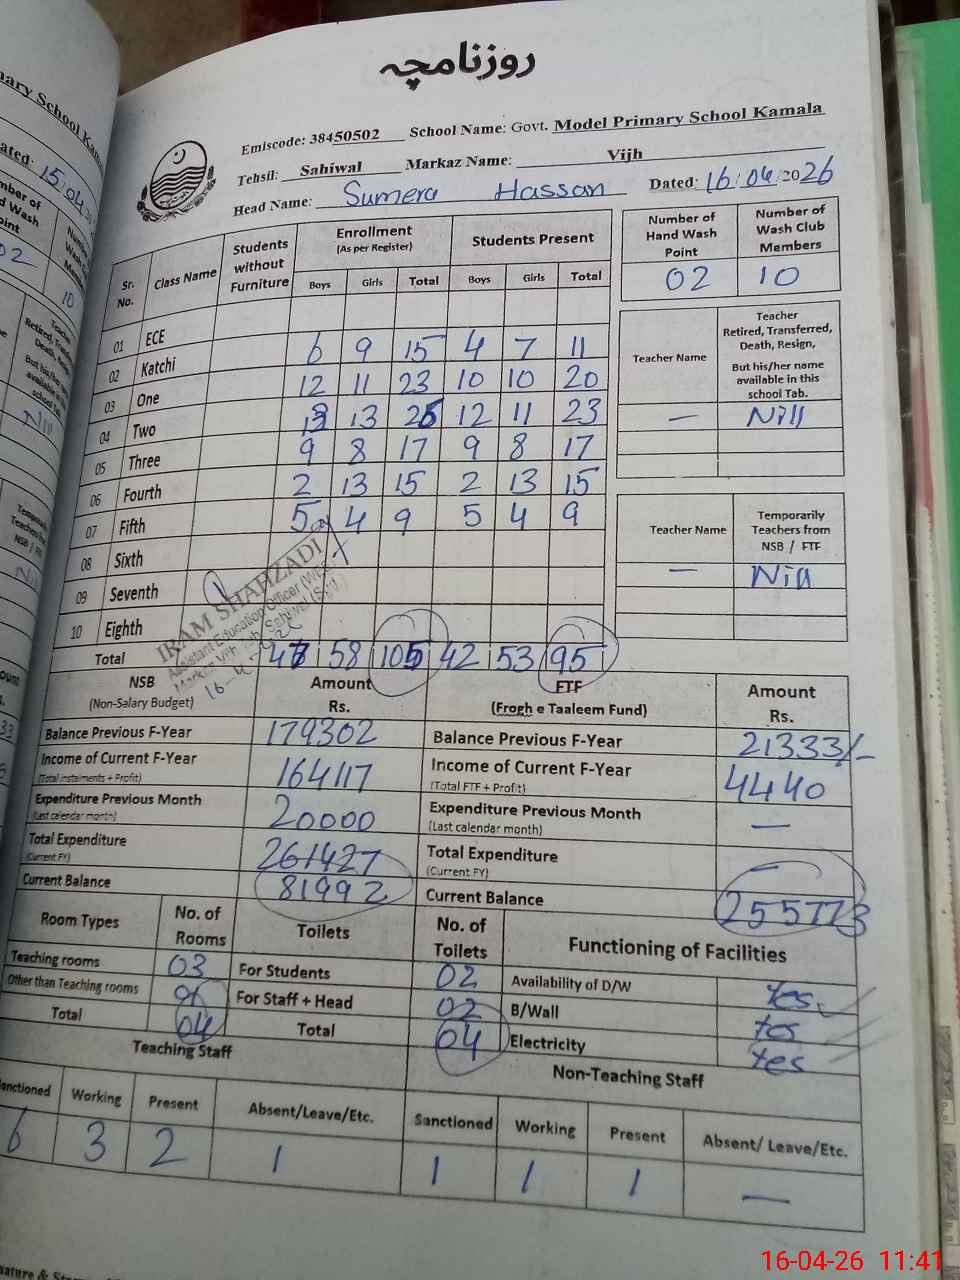 روزنامچہ
Emiscode: 38450502 School Name: Govt. Model Primary School Kamala
Tehsil: Sahiwal Markaz Name: Vijh
Head Name: Sumera Hassan Dated: 16/04/2026
Sr. No. Class Name Students without Furniture Enrollment (As per Register) Students Present
Boys Girls Total Boys Girls Total
01 ECE 6 9 15 4 7 11
02 Katchi 12 11 23 10 10 20
03 One 13 26 12 11 23
04 Two 9 8 17 9 8 17
05 Three 2 13 15 2 13 15
06 Fourth 5 4 9 5 4 9
07 Fifth
08 Sixth
09 Seventh
10 Eighth
Total 47 58 105 42 53 95
IRAM SHAHZADI
Assistant Education Officer (WEE)
Markaz Vijh Teh. Sahiwal (SGD)
16-4-
Number of Hand Wash Point Number of Wash Club Members
02 10
Teacher Name Teacher Retired, Transferred, Death, Resign, But his/her name available in this school Tab.
— Nill
Teacher Name Temporarily Teachers from NSB / FTF
— Nill
NSB (Non-Salary Budget) Amount Rs. FTF (Frogh e Taaleem Fund) Amount Rs.
Balance Previous F-Year 179302 Balance Previous F-Year 21333/-
Income of Current F-Year (Total instalments + Profit) 164117 Income of Current F-Year (Total FTF + Profit) 4440
Expenditure Previous Month (Last calendar month) 20000 Expenditure Previous Month (Last calendar month) —
Total Expenditure (Current FY) 261427 Total Expenditure (Current FY) —
Current Balance 81992 Current Balance 255773
Room Types No. of Rooms Toilets No. of Toilets Functioning of Facilities
Teaching rooms 03 For Students 02 Availability of D/W Yes
Other than Teaching rooms 01 For Staff + Head 02 B/Wall Yes
Total 04 Total 04 Electricity Yes
Teaching Staff Non-Teaching Staff
Sanctioned Working Present Absent/Leave/Etc. Sanctioned Working Present Absent/ Leave/Etc.
6 3 2 1 1 1 1 —
16-04-26 11:41